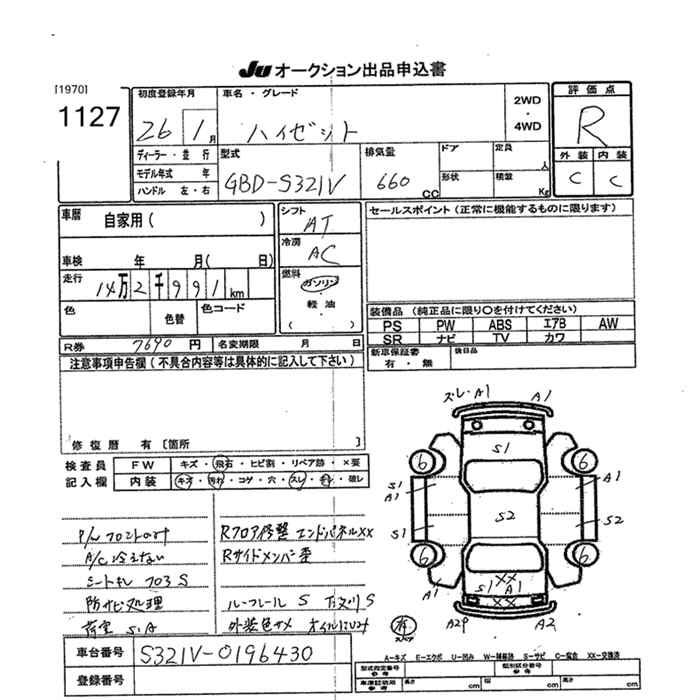 JU オークション出品申込書
[1970]
1127
初度登録年月
26年 1月
車名・グレード
ハイゼット
2WD
・
4WD
評価点
R
外装 内装
C C
ディーラー・並行
モデル年式 年
ハンドル 左・右
型式
GBD-S321V
排気量
660 CC
ドア
形状
定員 人
積載 Kg
車歴
自家用( )
車検 年 月( 日)
走行
14万2千991km
色
色替
色コード
シフト
AT
冷房
AC
燃料
ガソリン
・
軽油
( )
セールスポイント(正常に機能するものに限ります)
装備品(純正品に限り○を付けてください)
PS PW ABS エアB AW
SR ナビ TV カワ
R券 7690円 名変期限 月 日
新車保証書
有・無
後日品
注意事項申告欄(不具合内容等は具体的に記入して下さい)
修復歴 有[箇所 ]
検査員
記入欄
FW キズ・飛石・ヒビ割・リペア跡・×要
内装 キズ・汚れ・コゲ・穴・スレ・・破レ
ズレ・A1 A1
S1
6 6
S1 A1
A1
S2
S1
S2
6 6
XX
S1 A1
A1 A1
XX
A29 A2
有
スペア
P/Wフロントのみ
A/C冷えない
シートキレ フロS
防サビ処理
荷室 S.A
Rフロア修整 エンドパネルXX
Rサイドメンバー歪
ルーフレールS 下廻りS
外装色サメ オイルにじみ
A-キズ E-エクボ U-凹み W-補修跡 S-サビ C-腐食 XX-交換済
車台番号 S321V-0196430
登録番号
型式指定番号
参考
類別区分番号
参考
車庫証明用
参考
長さ cm 幅 cm 高さ cm